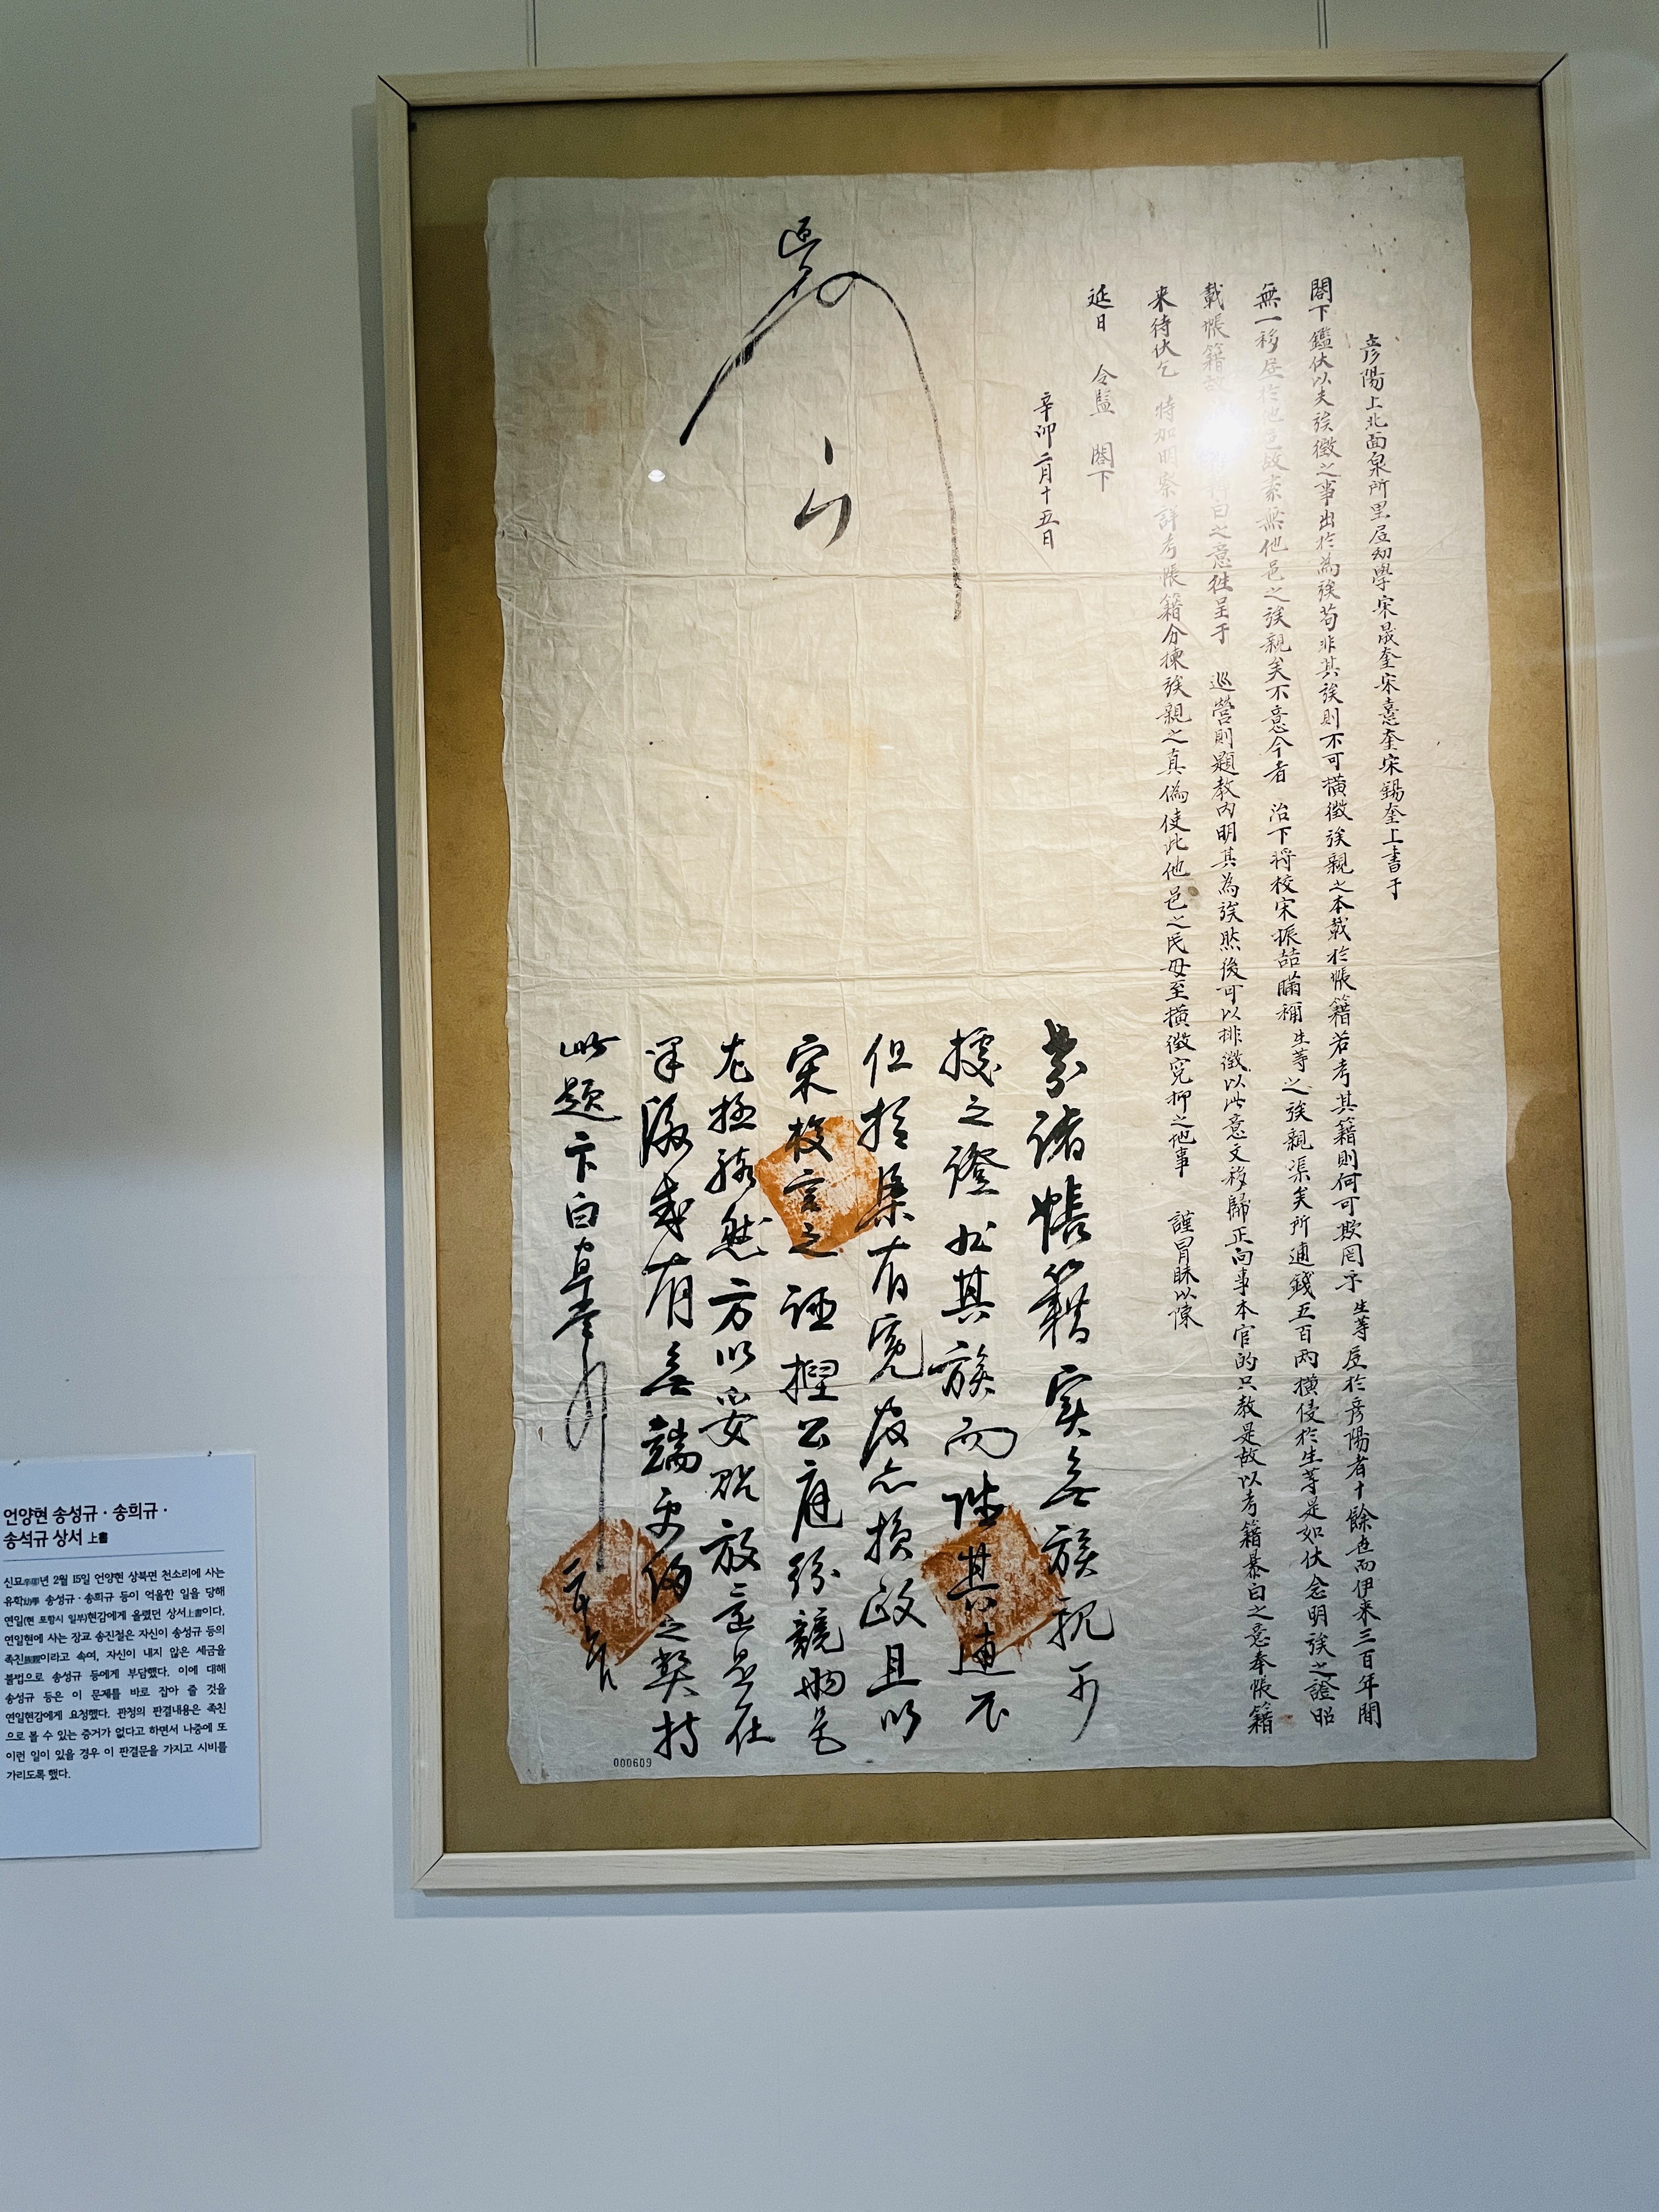 彦陽上北面泉所里居幼學宋晟奎宋憙奎宋錫奎上書于
閤下鑑伏以夫族徵之事出於為族苟非其族則不可橫徵族親之本載於帳籍若考其籍則何可欺罔乎生等居於彦陽者十餘世而伊來三百年間
無一移居於他邑故素無他邑之族親矣不意今者 治下將校宋振喆瞞稱生等之族親渠矣所逋錢五百兩橫侵於生等是如伏念明族之證昭
載帳籍故 之意徃呈于 巡營則題教內明其為族然後可以排徵以此意文移歸正向事本官的只教是故以考籍暴白之意奉帳籍
来待伏乞 特加明察詳考帳籍分揀族親之真偽使此他邑之民毋至橫徵寃抑之地事 謹冒昧以陳
延日 令監 閤下
辛卯二月十五日
諸帳籍实無族親可
據之證非其族而徵其逋不
但指渠有寃反亦損政且以
宋校言之誣揑公庭紛競
尤極駭然方以妥貼放 是在
果後或有無端更侵之弊持
此題卞白
000609
언양현 송성규 · 송희규 ·
송석규 상서 上書
신묘辛卯년 2월 15일 언양현 상북면 천소리에 사는
유학幼學 송성규 · 송희규 등이 억울한 일을 당해
연일(현 포항시 일부)현감에게 올렸던 상서上書이다.
연일현에 사는 장교 송진철은 자신이 송성규 등의
족친族親이라고 속여, 자신이 내지 않은 세금을
불법으로 송성규 등에게 부담했다. 이에 대해
송성규 등은 이 문제를 바로 잡아 줄 것을
연일현감에게 요청했다. 관청의 판결내용은 족친
으로 볼 수 있는 증거가 없다고 하면서 나중에 또
이런 일이 있을 경우 이 판결문을 가지고 시비를
가리도록 했다.